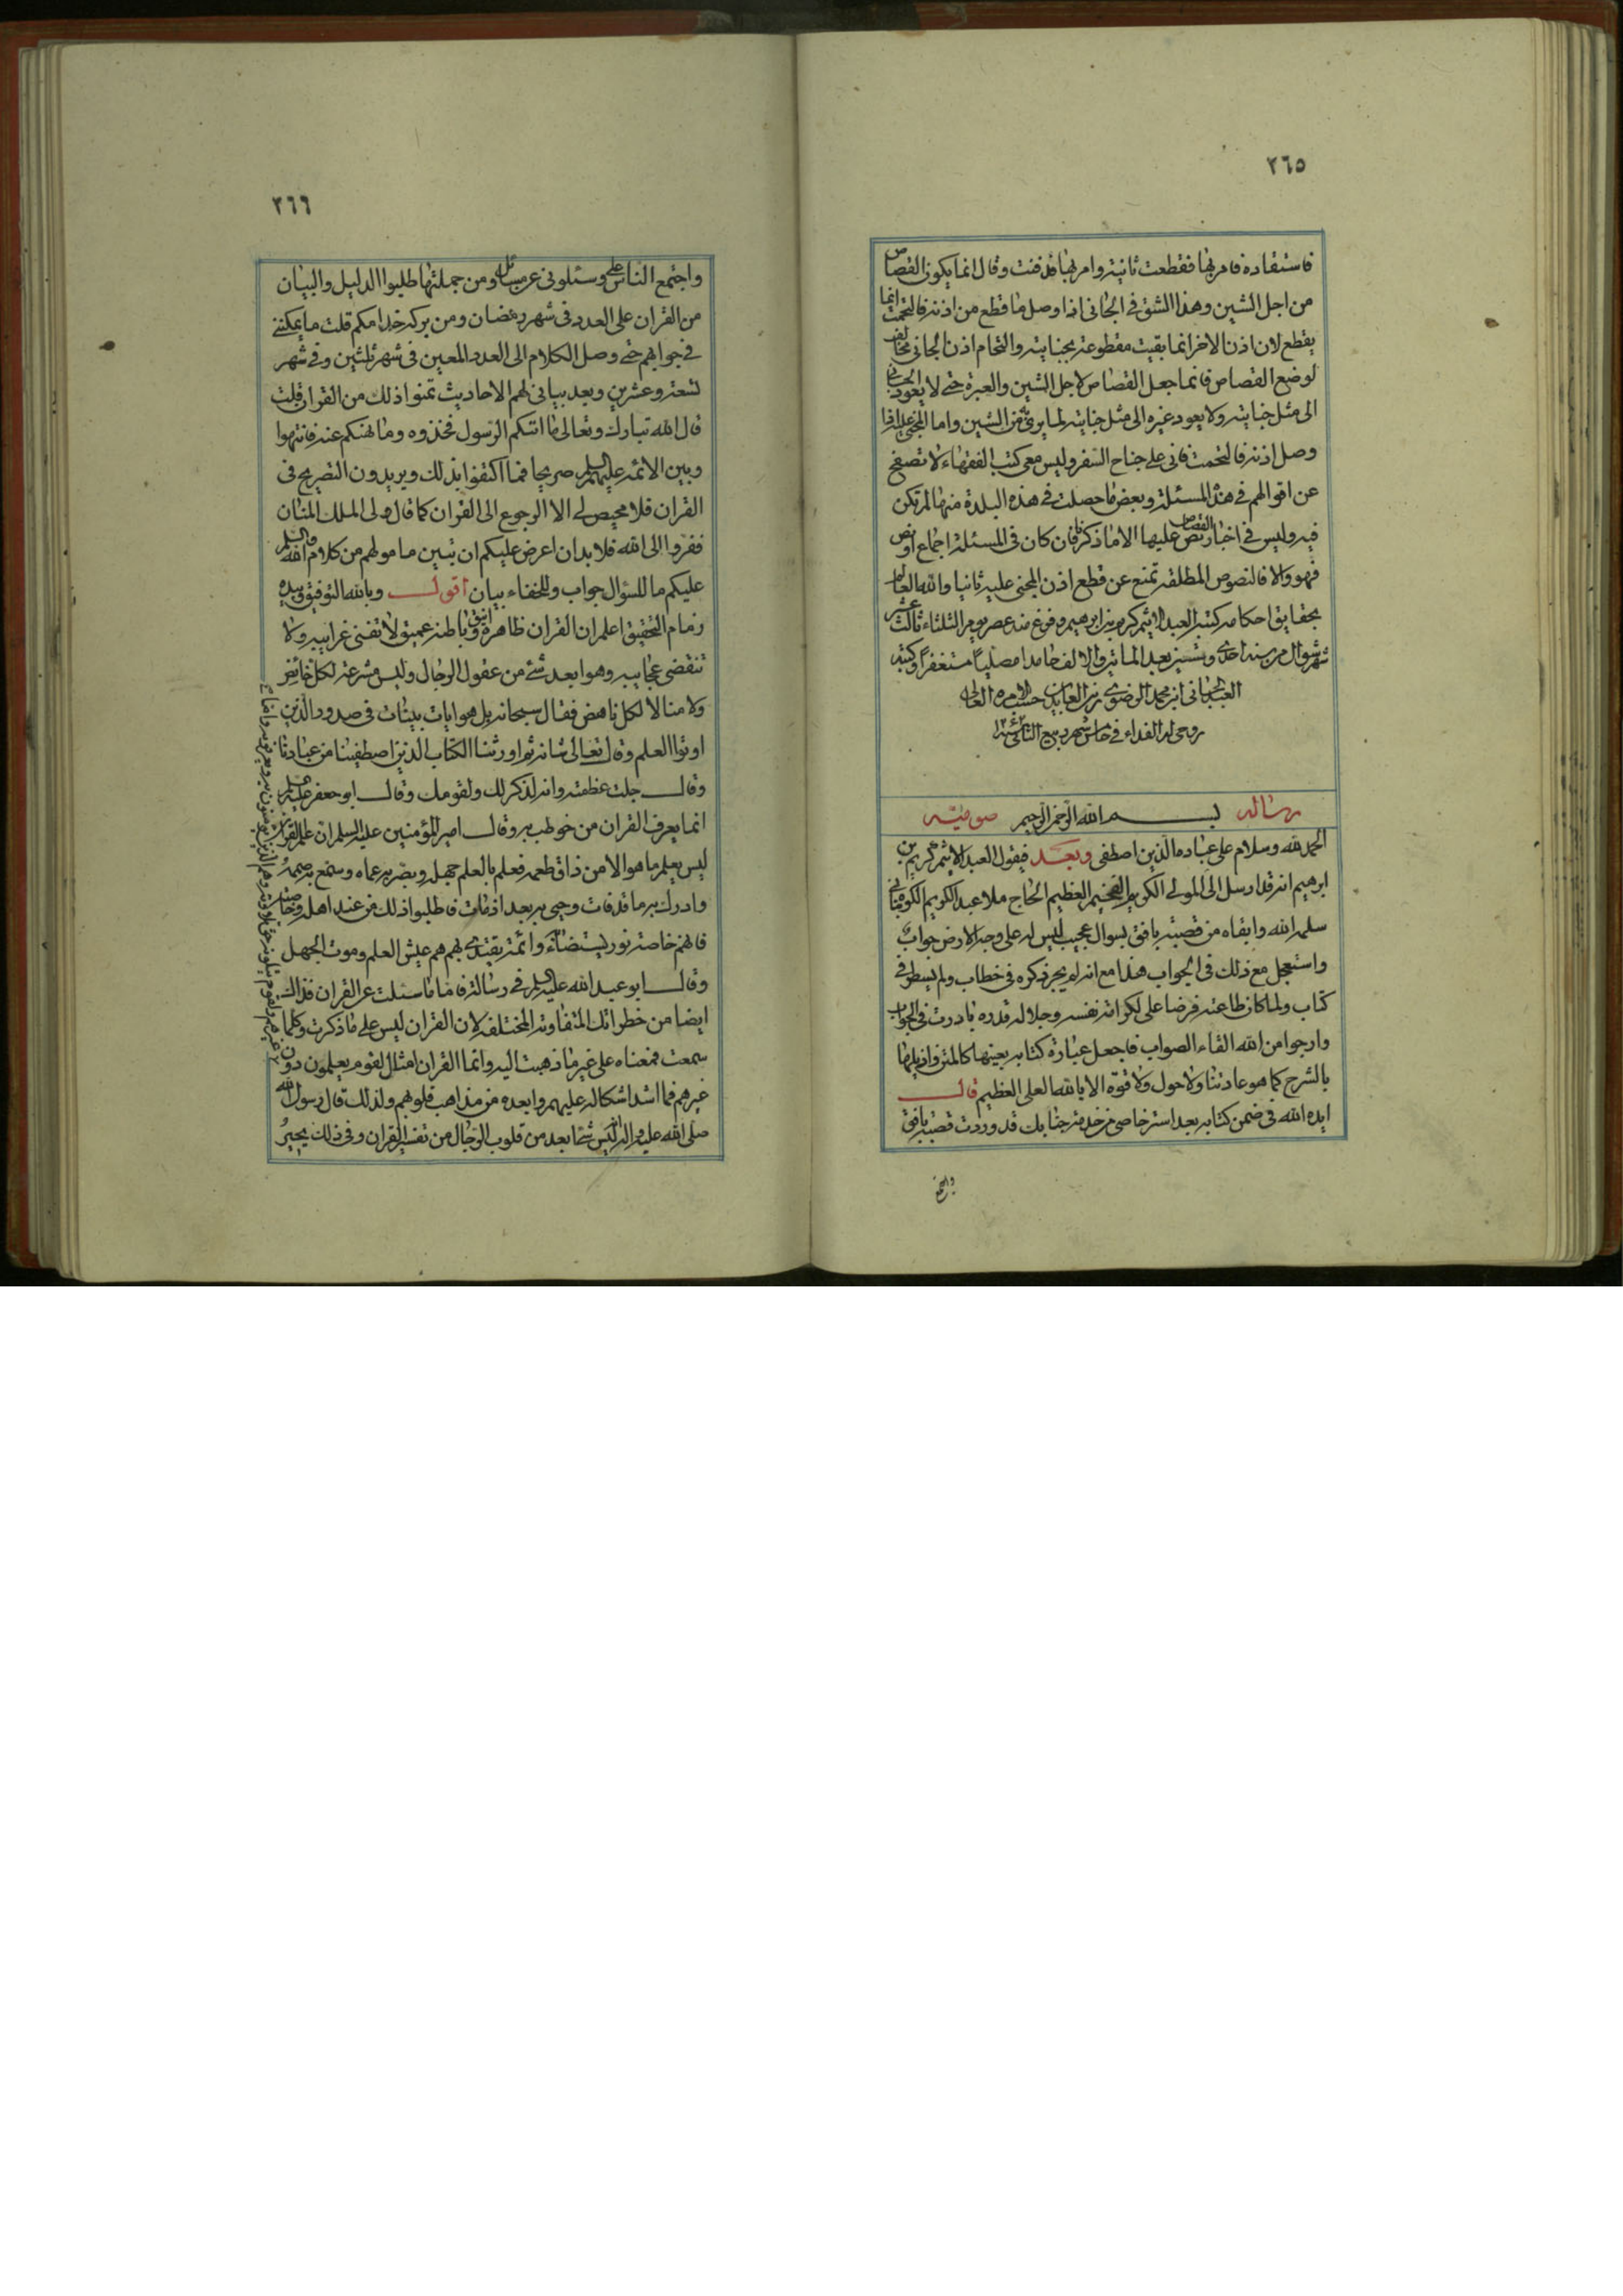 ٢٦٥
فاستقاده فامر بها فقطعت ثانية وامر بها فدفنت وقال انما يكون القصاص
من اجل الشين وهذا الشق في الجاني اذا وصل ما قطع من اذنه فالتحمت انما
يقطع لان اذن الاخر انما بقيت مقطوعة بجنايته والتحام اذن الجاني مخالف
لوضع القصاص فانما جعل القصاص لاجل الشين والعبرة حتى لا يعود الجاني
الى مثل جنايته ولا يعود غيره الى مثل جنايته لما يرى من الشين واما المجني عليه اذا
وصل اذنه فالتحمت فاني على جناح السفر وليس معي كتب الفقهاء لا تصفح
عن اقوالهم في هذه المسئلة وبعض ما حصلت في هذه البلدة منها لم تكن
فيه وليس في اخبار القصاص نص عليها الا ما ذكرنا فان كان في المسئلة اجماع او نص
فهو والا فالنصوص المطلقة تمنع عن قطع اذن المجني عليه ثانيا والله العالم
بحقايق احكامه كتبه العبد الاثيم كريم بن ابرهيم وفرغ منه عصر يوم الثلثاء ثالث عشر
شهر شوال من سنة احدى وستين بعد الماتين والالف حامدا مصليا مستغفرا وكتبه
العبد الجاني ابن محمد الرضوي زين العابدين حسب امره العالي
روحي له الفداء في خامس شهر ربيع الثاني
رساله بسم الله الرحمن الرحيم صوميّه
الحمد لله وسلام على عباده الذين اصطفى وبعد فيقول العبد الاثيم كريم بن
ابرهيم انه قد ارسل الى المولى الكريم الفخيم العظيم الحاج ملا عبد الكريم الكرماني
سلمه الله وابقاه من قصبة بافق بسوال عجيب ليس له على وجه الارض جواب
واستعجل مع ذلك في الجواب هذا مع انه لم يجر ذكره في خطاب ولم يسطر في
كتاب ولما كان طاعته فرضا على لكرامة نفسه وجلالة قدره بادرت في الجواب
وارجوا من الله القاء الصواب فاجعل عبارة كتابه بعينها كالمتن واذيلها
بالشرح كما هو عادتنا ولا حول ولا قوة الا بالله العلي العظيم قال
ايده الله في ضمن كتابه بعد استرخاصي من خدمة جنابك قد وردت قصبة بافق
٢٦٦
واجتمع الناس علي وسئلوني عن مسائل ومن جملتها طلبوا الدليل والبيان
من القران على العدد في شهر رمضان ومن بركة خدامكم قلت ما يمكنني
في جوابهم حتى وصل الكلام الى العدد المعين في شهر ثلثين وفي شهر
تسعة وعشرين وبعد بياني لهم الاحاديث تمنوا ذلك من القران قلت
قال الله تبارك وتعالى ما اتيكم الرسول فخذوه وما نهيكم عنه فانتهوا
وبين الائمة عليهم السلم صريحا فما اكتفوا بذلك ويريدون التصريح في
القران فلا محيص لي الا الرجوع الى القران كما قال ولى الملك المنان
ففروا الى الله فلا بد ان اعرض عليكم ان تبين مامولهم من كلام الله والسلم
عليكم ما للسؤال جواب وللخفاء بيان اقول وبالله التوفيق وبيده
زمام التحقيق اعلم ان القران ظاهره انيق وباطنه عميق لا تفنى غرايبه ولا
تنقضي عجايبه وهو ابعد شئ من عقول الرجال وليس مشرعة لكل خائض
ولا منالا لكل ناهض فقال سبحانه بل هو ايات بينات في صدور الذين
اوتوا العلم وقال تعالى شانه ثم اورثنا الكتاب الذين اصطفينا من عبادنا
وقال جلت عظمته وانه لذكر لك ولقومك وقال ابو جعفر عليه السلم
انما يعرف القران من خوطب به وقال امير المؤمنين عليه السلم ان علم القران
ليس يعلم ما هو الا من ذاق طعمه فعلم بالعلم جهله وبصر به عماه وسمع به صممه
وادرك به ما قد فات وحيى به بعد اذ مات فاطلبوا ذلك من عند اهله وخاصته
فانهم خاصة نور يستضاء وائمة يقتدى بهم هم عيش العلم وموت الجهل
وقال ابو عبد الله عليه السلم في رسالته فاما ما سئلت عن القران فذلك
ايضا من خطراتك المتفاوتة المختلفة لان القران ليس على ما ذكرت وكلما
سمعت فمعناه على غير ما ذهبت اليه وانما القران امثال لقوم يعلمون دون
غيرهم فما اشد اشكاله عليهم وابعده من مذاهب قلوبهم ولذلك قال رسول الله
صلى الله عليه واله ليس شئ ابعد من قلوب الرجال من تفسير القران وفي ذلك يحير